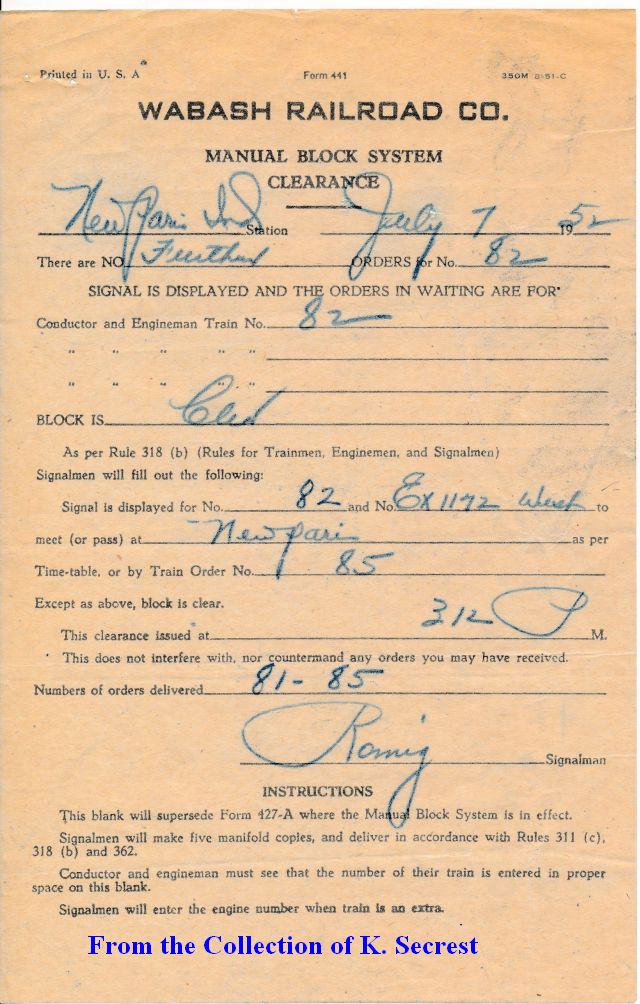 Printed in U. S. A    Form 441    350M 8-51-C
WABASH RAILROAD CO.
MANUAL BLOCK SYSTEM
CLEARANCE
New Paris Ind Station July 7 1952
There are NO Further ORDERS for No. 82
SIGNAL IS DISPLAYED AND THE ORDERS IN WAITING ARE FOR
Conductor and Engineman Train No. 82
" " " " "
" " " " "
BLOCK IS
As per Rule 318 (b) (Rules for Trainmen, Enginemen, and Signalmen)
Signalmen will fill out the following:
Signal is displayed for No. 82 and No. Ex 1172 West to
meet (or pass) at New Paris as per
Time-table, or by Train Order No. 85
Except as above, block is clear.
This clearance issued at 312 P M.
This does not interfere with, nor countermand any orders you may have received.
Numbers of orders delivered 81 - 85
Romig Signalman
INSTRUCTIONS
This blank will supersede Form 427-A where the Manual Block System is in effect.
Signalmen will make five manifold copies, and deliver in accordance with Rules 311 (c),
318 (b) and 362.
Conductor and engineman must see that the number of their train is entered in proper
space on this blank.
Signalmen will enter the engine number when train is an extra.
From the Collection of K. Secrest